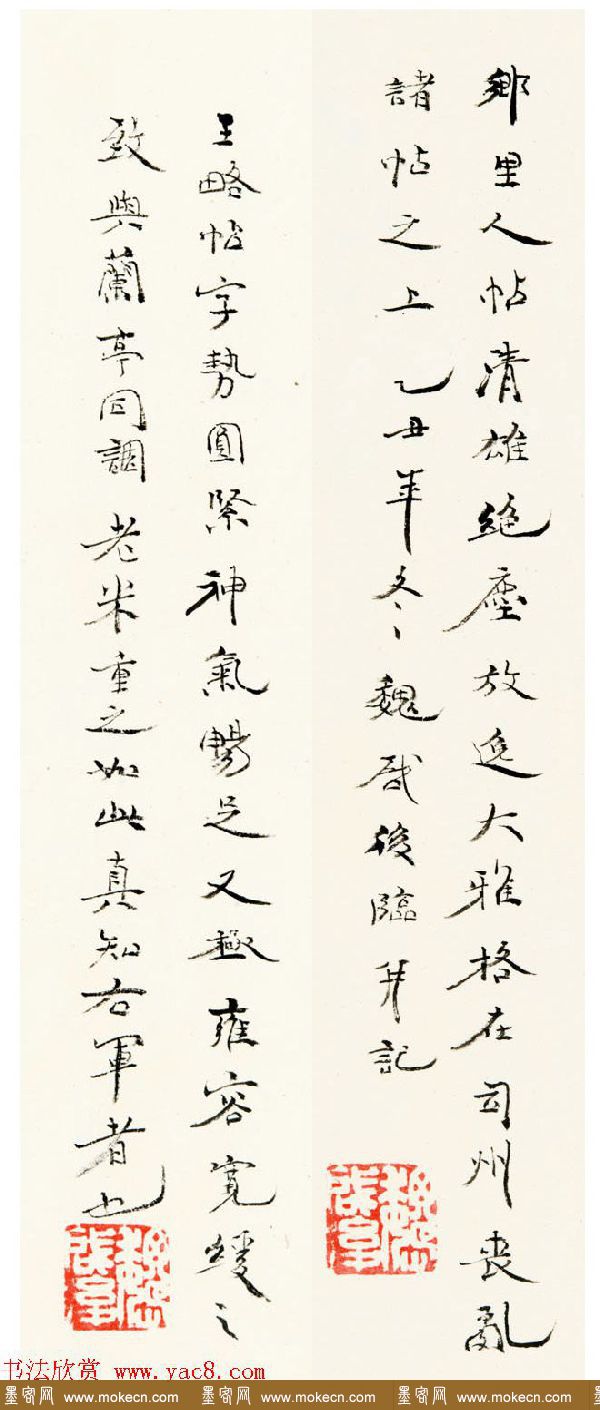 鄉里人帖清雄絕塵放逸大雅格在司州喪亂
諸帖之上乙丑年冬魏啟後臨并記
王略帖字勢圓緊神氣暢足又極雍容寬緩之
致與蘭亭同調老米重之如此真知右軍者也
书法欣赏 www.yac8.com
墨客网 www.mokecn.com 墨客网 www.mokecn.com 墨客网 www.mokecn.com